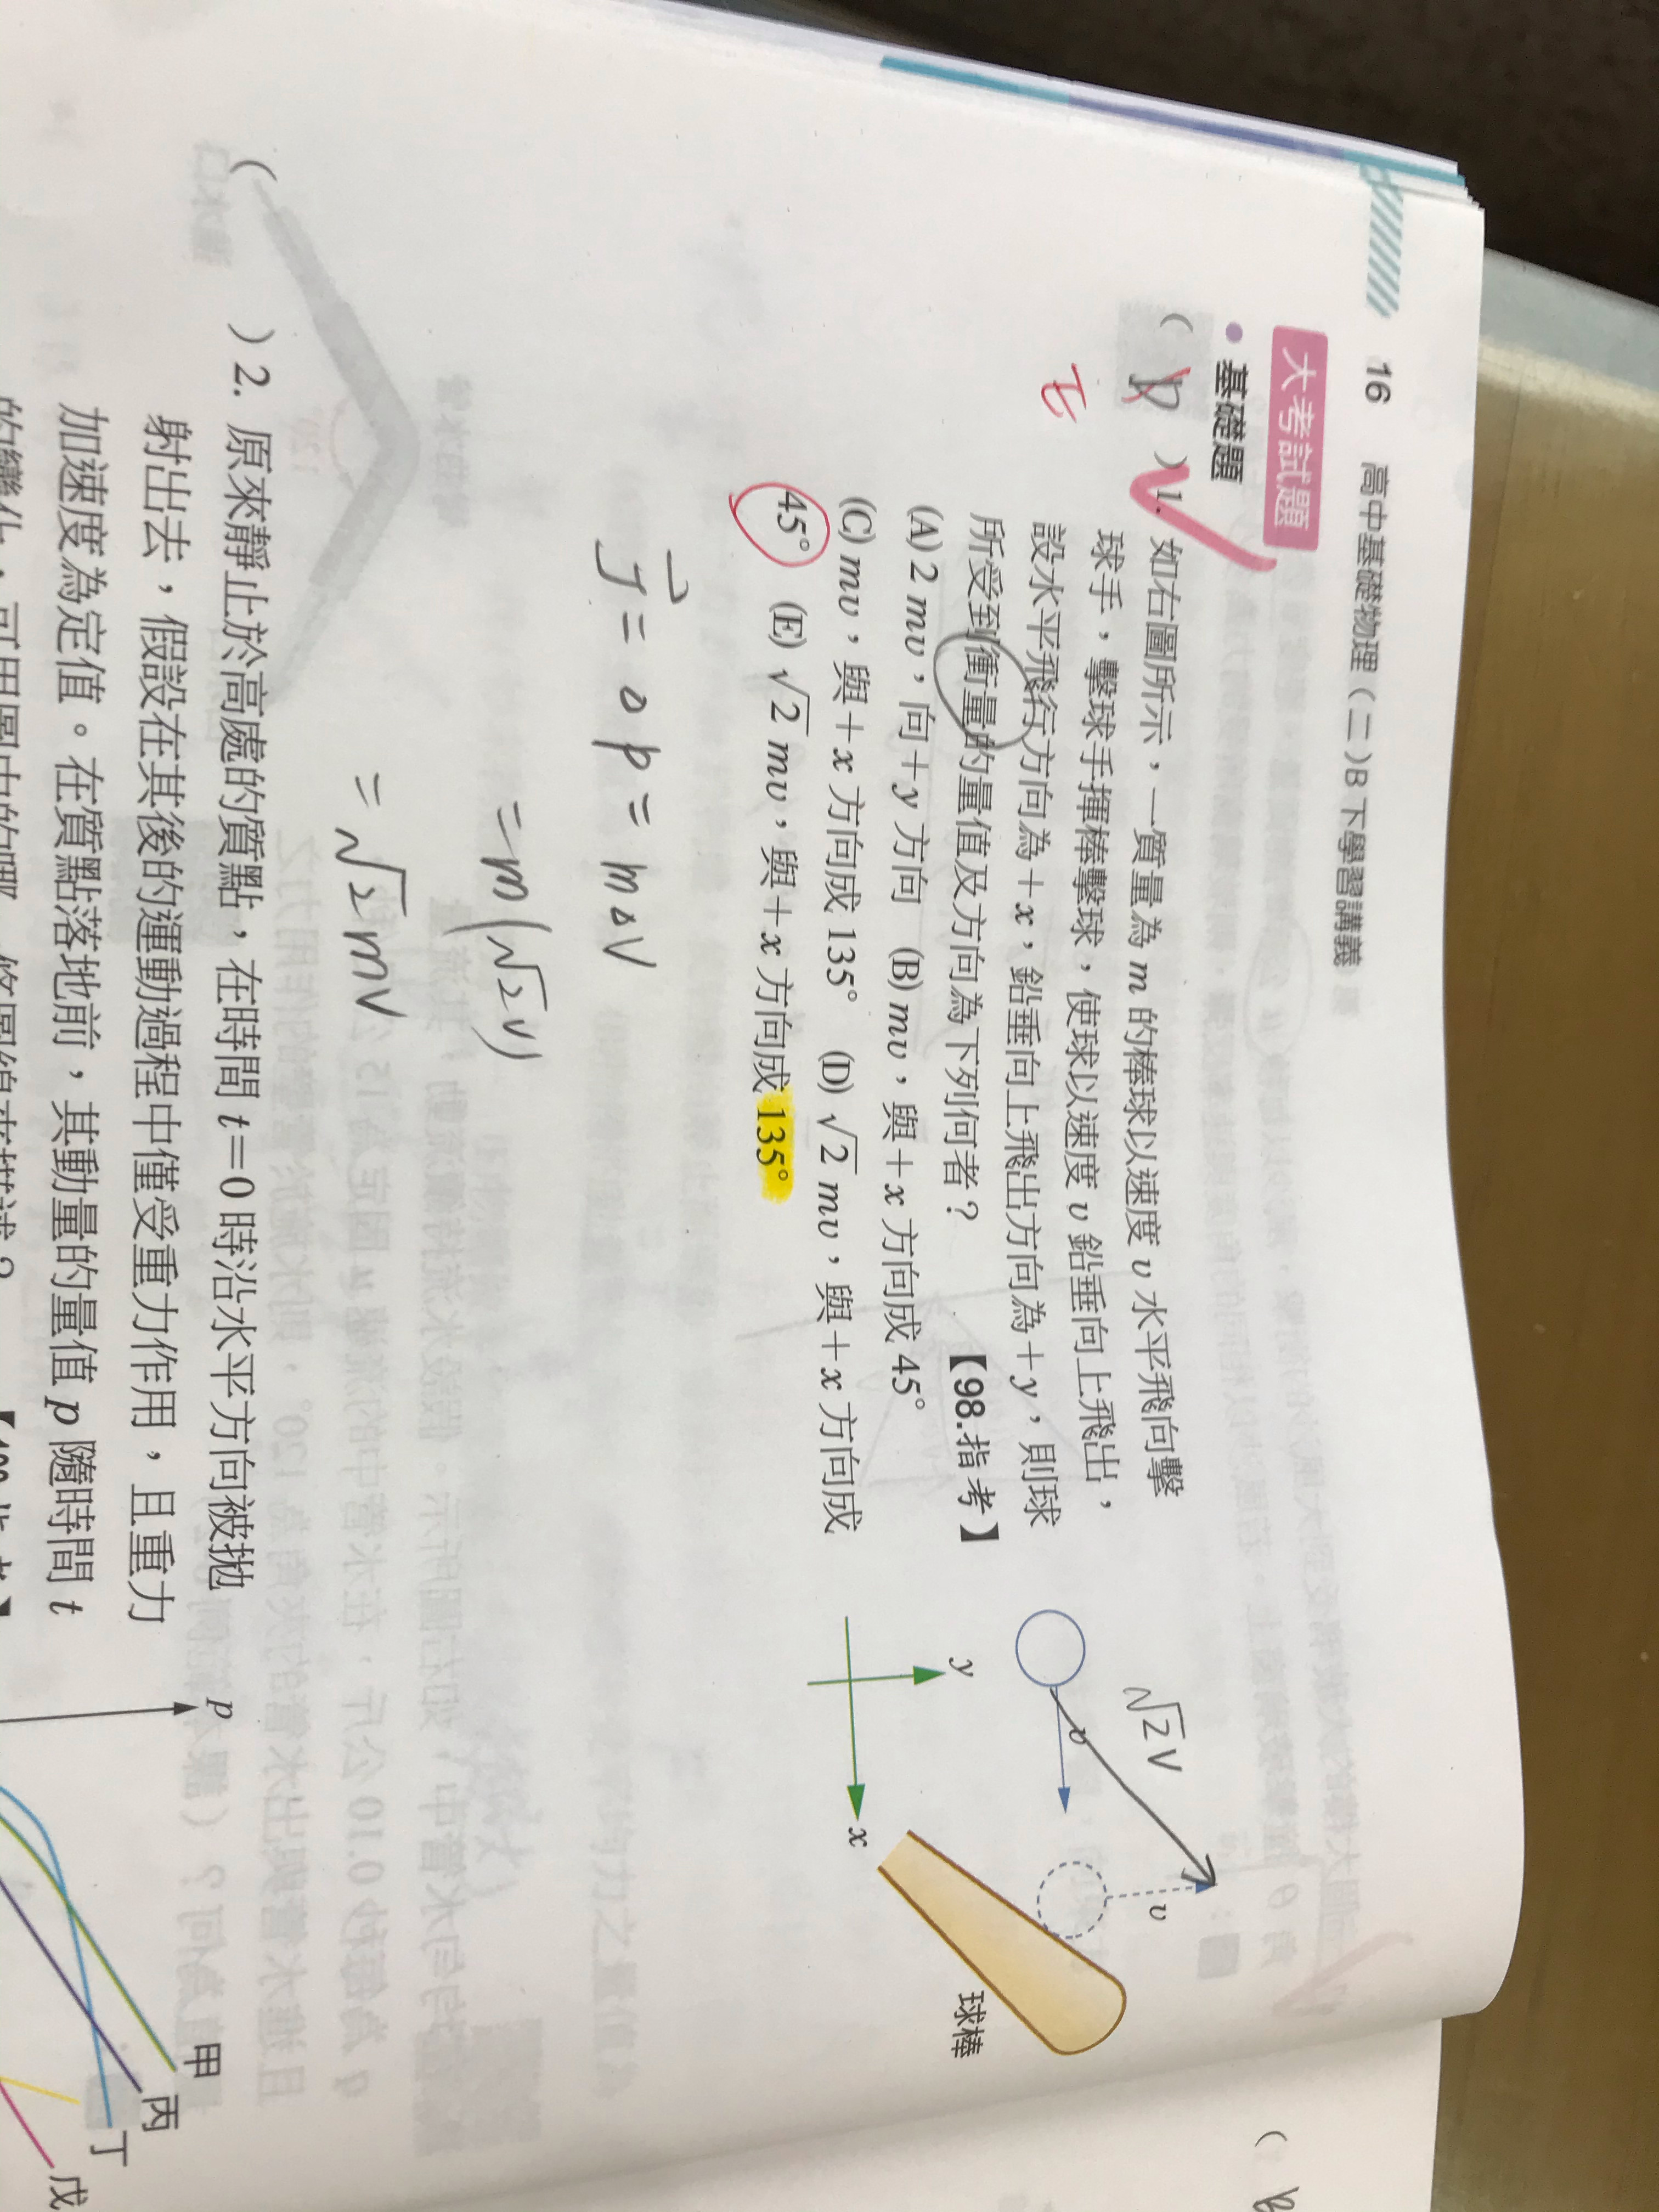 16 高中基礎物理(二)B下學習講義
大考試題
• 基礎題
( D ) 1. 如右圖所示,一質量為 m 的棒球以速度 v 水平飛向擊
E
球手,擊球手揮棒擊球,使球以速度 v 鉛垂向上飛出,
設水平飛行方向為+x,鉛垂向上飛出方向為+y,則球
所受到衝量的量值及方向為下列何者? 【98.指考】
(A) 2 mv,向+y 方向 (B) mv,與+x 方向成 45°
(C) mv,與+x 方向成 135° (D) √2 mv,與+x 方向成
45° (E) √2 mv,與+x 方向成 135°
√2V
v
v
y
x
球棒
J = ΔP = mΔV
= m(√2V)
= √2mV
( ) 2. 原來靜止於高處的質點,在時間 t=0 時沿水平方向被拋
射出去,假設在其後的運動過程中僅受重力作用,且重力
加速度為定值。在質點落地前,其動量的量值 p 隨時間 t
p
甲
丙
丁
戊